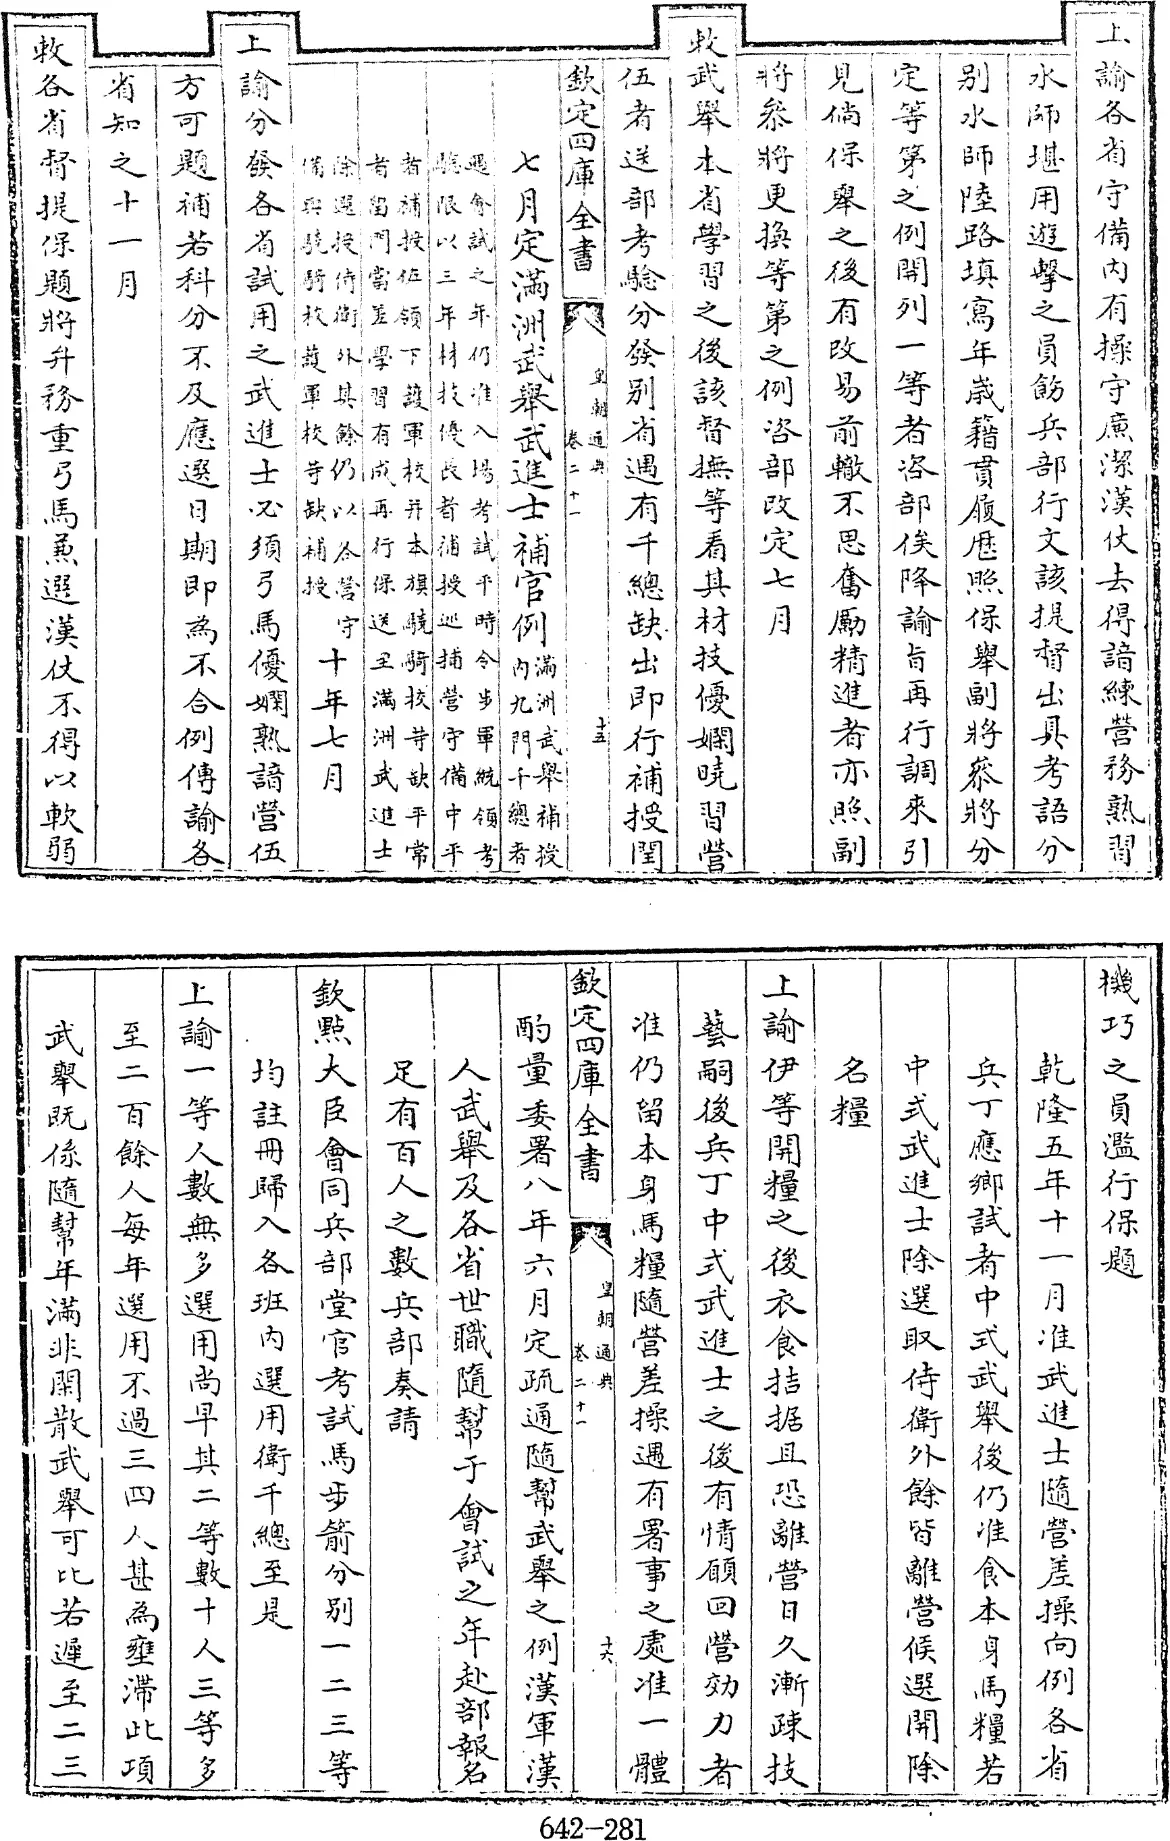 上諭各省守備內有操守廉潔漢仗去得諳練營務熟習
水師堪用遊擊之員飭兵部行文該提督出具考語分
别水師陸路填寫年嵗籍貫履歴照保舉副將叅將分
定等第之例開列一等者咨部俟降諭㫖再行調來引
見倘保舉之後有改易前轍不思奮勵精進者亦照副
將叅將更換等第之例咨部改定七月
敕武舉本省學習之後該督撫等看其材技優嫻曉習營
伍者送部考驗分發别省遇有千總缺出即行補授閏
欽定四庫全書
皇朝通典
卷二十一
十五
七月定滿洲武舉武進士補官例
滿洲武舉補授
內九門千總者
遇會試之年仍准入場考試平時令步軍統領考
驗限以三年材技優長者補授巡捕營守備中平
者補授佐領下護軍校并本旗驍騎校等缺平常
者留門當差學習有成再行保送至滿洲武進士
除選授侍衛外其餘仍以各營守
備與驍騎校護軍校等缺補授
十年七月
上諭分發各省試用之武進士必須弓馬優嫻熟諳營伍
方可題補若科分不及應選日期即為不合例傳諭各
省知之十一月
敕各省督提保題將弁務重弓馬兼選漢仗不得以軟弱
機巧之員濫行保題
乾隆五年十一月准武進士隨營差操向例各省
兵丁應鄉試者中式武舉後仍准食本身馬糧若
中式武進士除選取侍衛外餘皆離營候選開除
名糧
上諭伊等開糧之後衣食拮据且恐離營日久漸疎技
藝嗣後兵丁中式武進士之後有情願回營効力者
准仍留本身馬糧隨營差操遇有署事之處准一體
欽定四庫全書
皇朝通典
卷二十一
十六
酌量委署八年六月定疏通隨幫武舉之例漢軍漢
人武舉及各省世職隨幫于會試之年赴部報名
足有百人之數兵部奏請
欽點大臣會同兵部堂官考試馬步箭分别一二三等
均註冊歸入各班內選用衛千總至是
上諭一等人數無多選用尚早其二等數十人三等多
至二百餘人每年選用不過三四人甚為壅滯此項
武舉既係隨幫年滿非閑散武舉可比若遲至二三
642-281